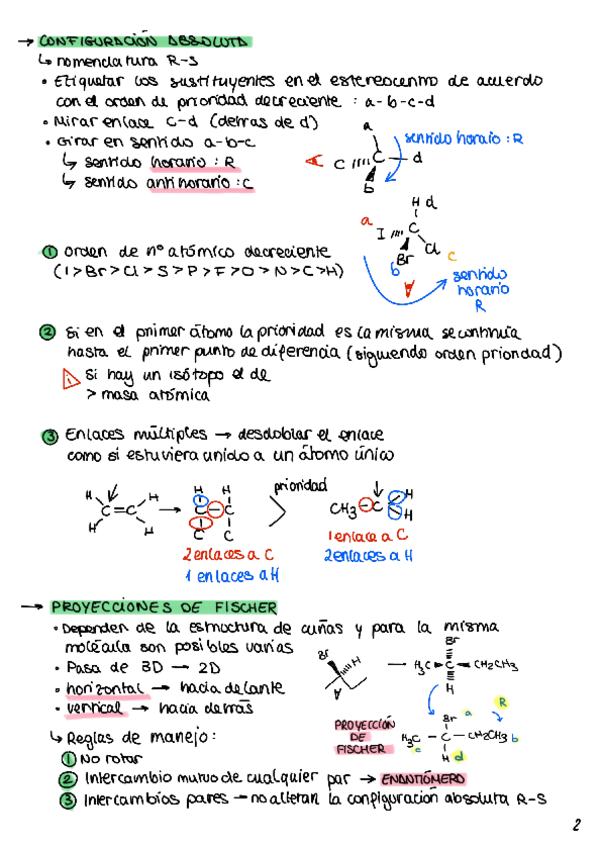 → CONFIGURACIÓN ABSOLUTA
↳ nomenclatura R-S
• Etiquetar los sustituyentes en el estereocentro de acuerdo
con el orden de prioridad decreciente : a-b-c-d
• Mirar enlace C-d (detras de d)
• Girar en sentido a-b-c
↳ sentido horario : R
↳ sentido antihorario : C
a
sentido horario : R
C C d
b
H d
a
I C
Br Cl c
b
sentido
horario
R
① Orden de nº atómico decreciente
(I > Br > Cl > S > P > F > O > N > C > H)
② Si en el primer átomo la prioridad es la misma se continúa
hasta el primer punto de diferencia (siguiendo orden prioridad)
Si hay un isótopo el de
> masa atómica
③ Enlaces múltiples → desdoblar el enlace
como si estuviera unido a un átomo único
H H
C=C
H H
→
H H
C-C
C C
prioridad
>
CH3-C
H
H
2 enlaces a C
1 enlaces a H
1 enlace a C
2 enlaces a H
→ PROYECCIONES DE FISCHER
• Dependen de la estructura de cuñas y para la misma
molécula son posibles varias
• Pasa de 3D → 2D
• horizontal → hacia delante
• vertical → hacia detrás
Br
H
Br
H3C C CH2CH3
H
R
PROYECCIÓN
DE
FISCHER
Br a
H3C - C - CH2CH3 b
c
H d
↳ Reglas de manejo :
① No rotar
② Intercambio mutuo de cualquier par → ENANTIÓMERO
③ Intercambios pares → no alteran la configuración absoluta R-S
2